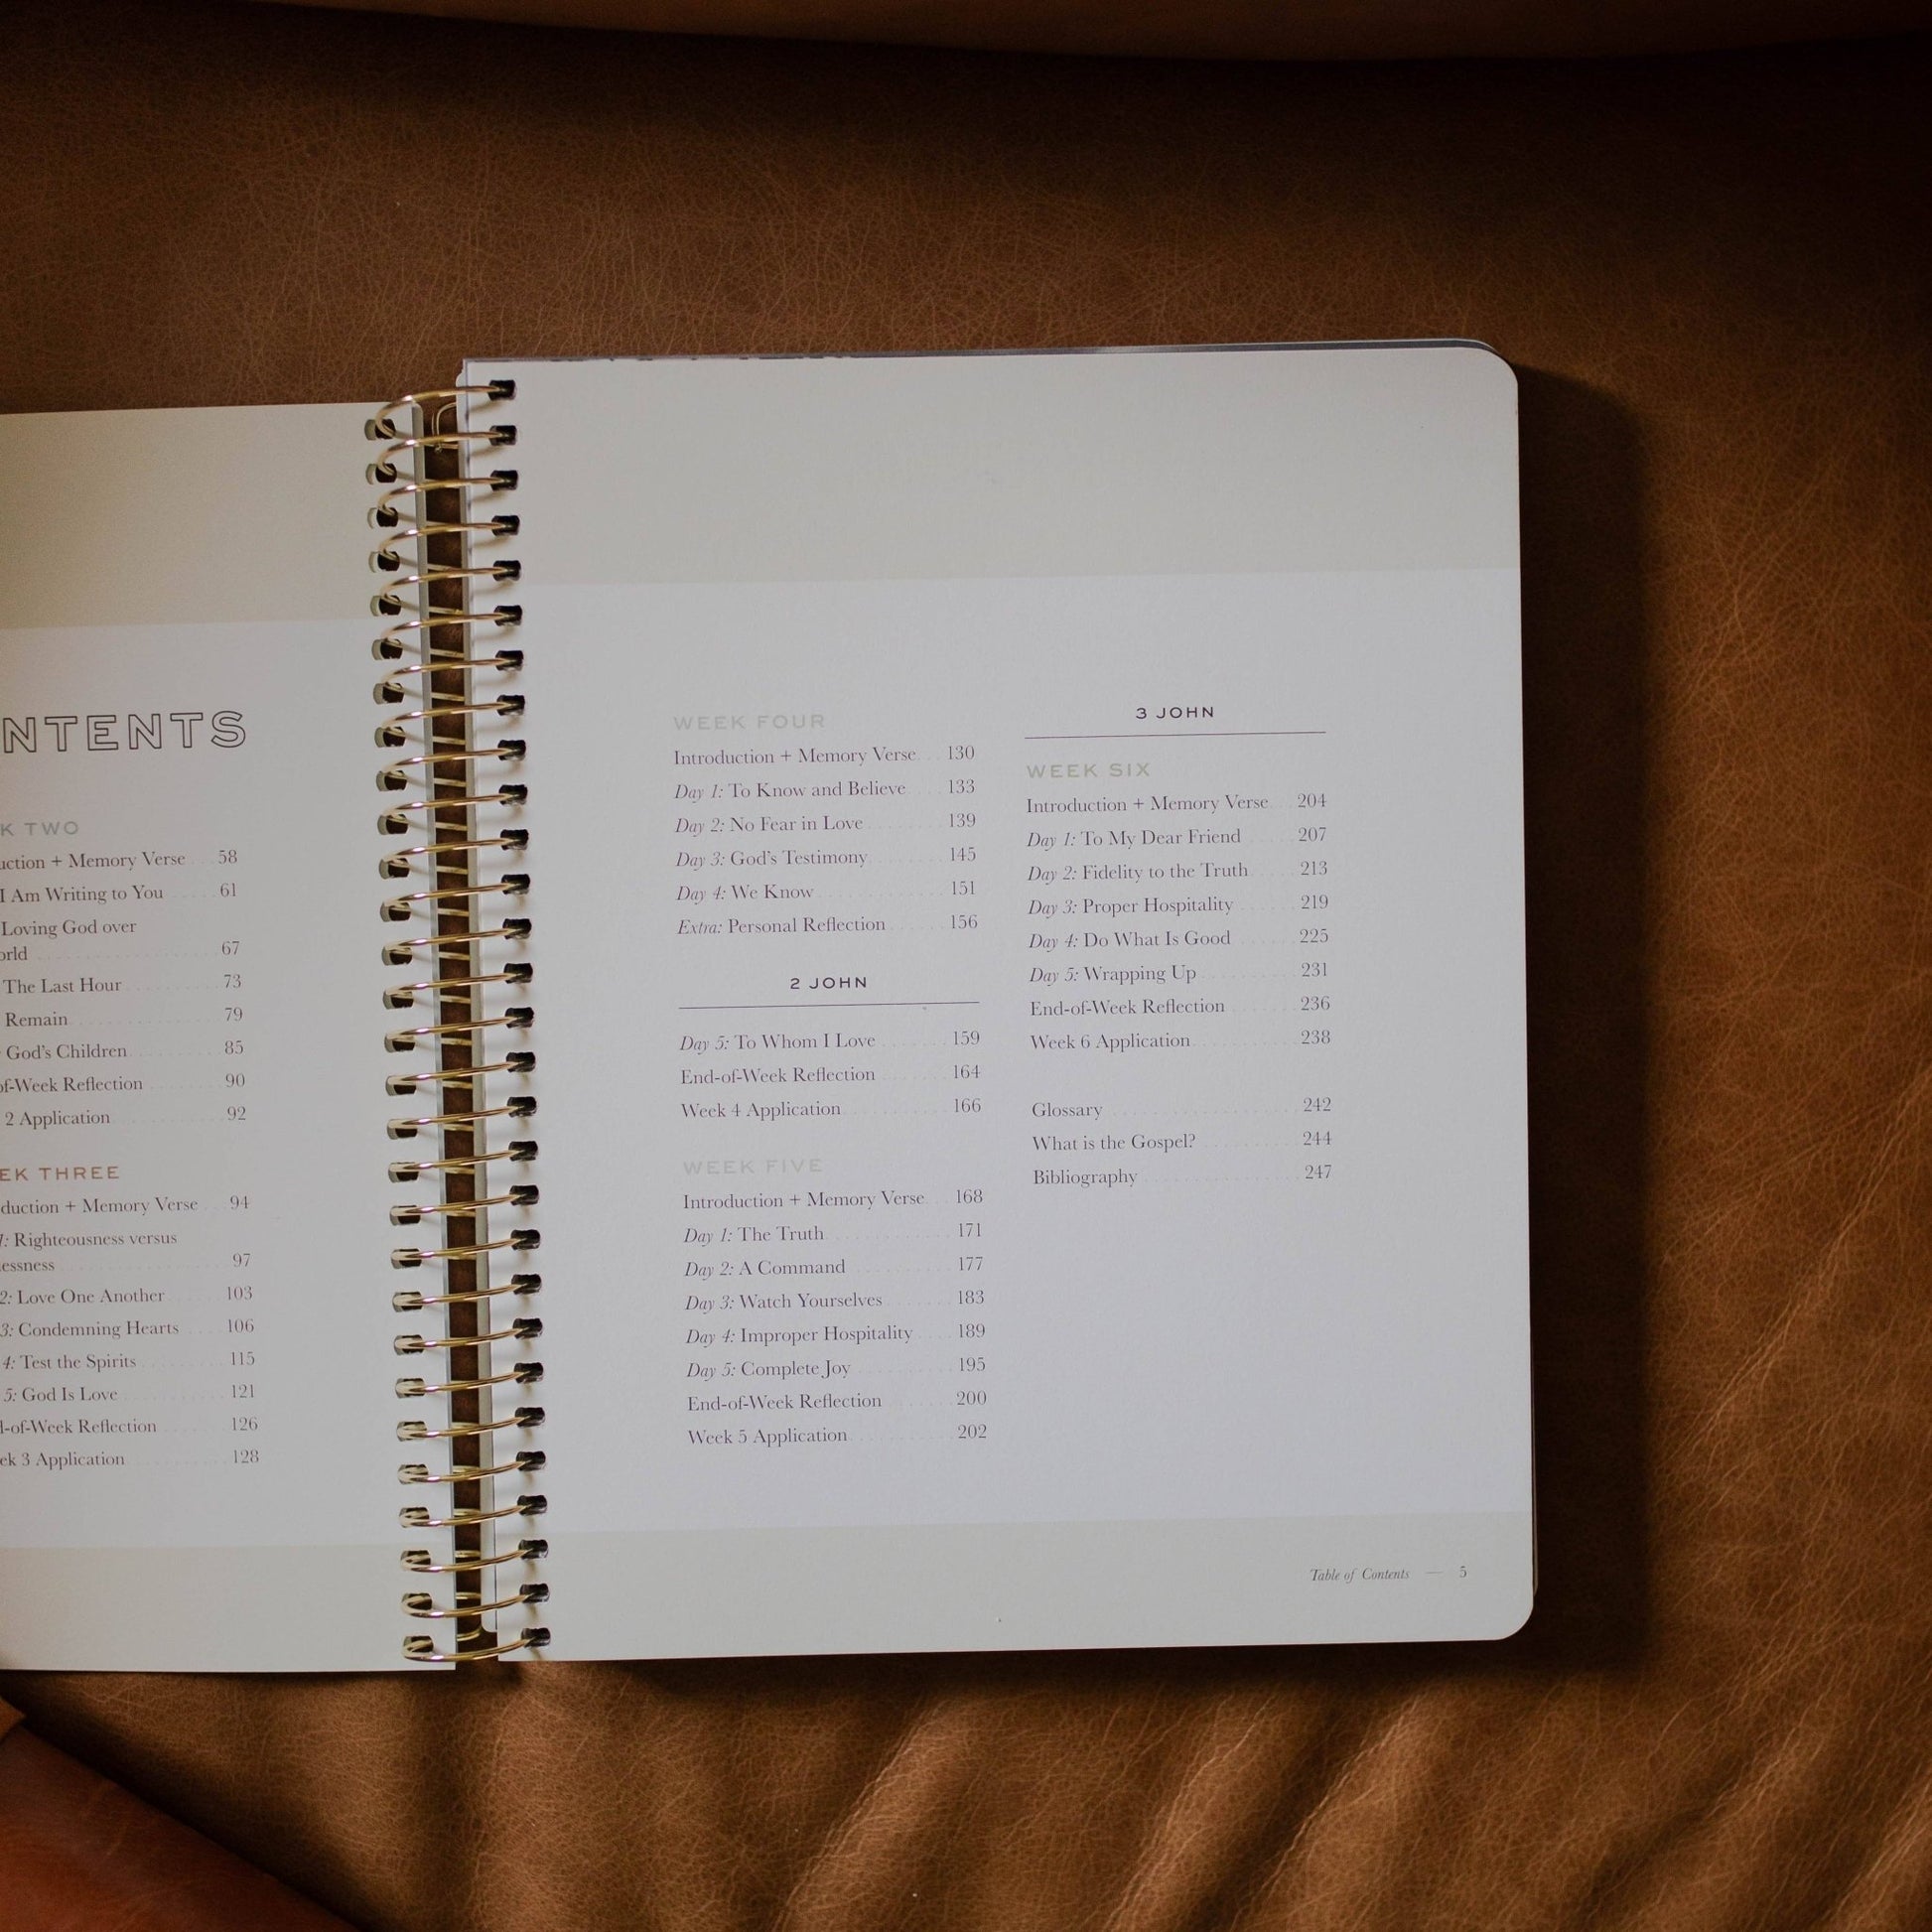 NTENTS
K TWO
uction + Memory Verse 58
I Am Writing to You 61
Loving God over
orld 67
The Last Hour 73
Remain 79
God's Children 85
of-Week Reflection 90
2 Application 92
EK THREE
duction + Memory Verse 94
1: Righteousness versus
essness 97
2: Love One Another 103
3: Condemning Hearts 106
4: Test the Spirits 115
5: God Is Love 121
d-of-Week Reflection 126
ek 3 Application 128
WEEK FOUR
Introduction + Memory Verse 130
Day 1: To Know and Believe 133
Day 2: No Fear in Love 139
Day 3: God's Testimony 145
Day 4: We Know 151
Extra: Personal Reflection 156
2 JOHN
Day 5: To Whom I Love 159
End-of-Week Reflection 164
Week 4 Application 166
WEEK FIVE
Introduction + Memory Verse 168
Day 1: The Truth 171
Day 2: A Command 177
Day 3: Watch Yourselves 183
Day 4: Improper Hospitality 189
Day 5: Complete Joy 195
End-of-Week Reflection 200
Week 5 Application 202
3 JOHN
WEEK SIX
Introduction + Memory Verse 204
Day 1: To My Dear Friend 207
Day 2: Fidelity to the Truth 213
Day 3: Proper Hospitality 219
Day 4: Do What Is Good 225
Day 5: Wrapping Up 231
End-of-Week Reflection 236
Week 6 Application 238
Glossary 242
What is the Gospel? 244
Bibliography 247
Table of Contents — 5